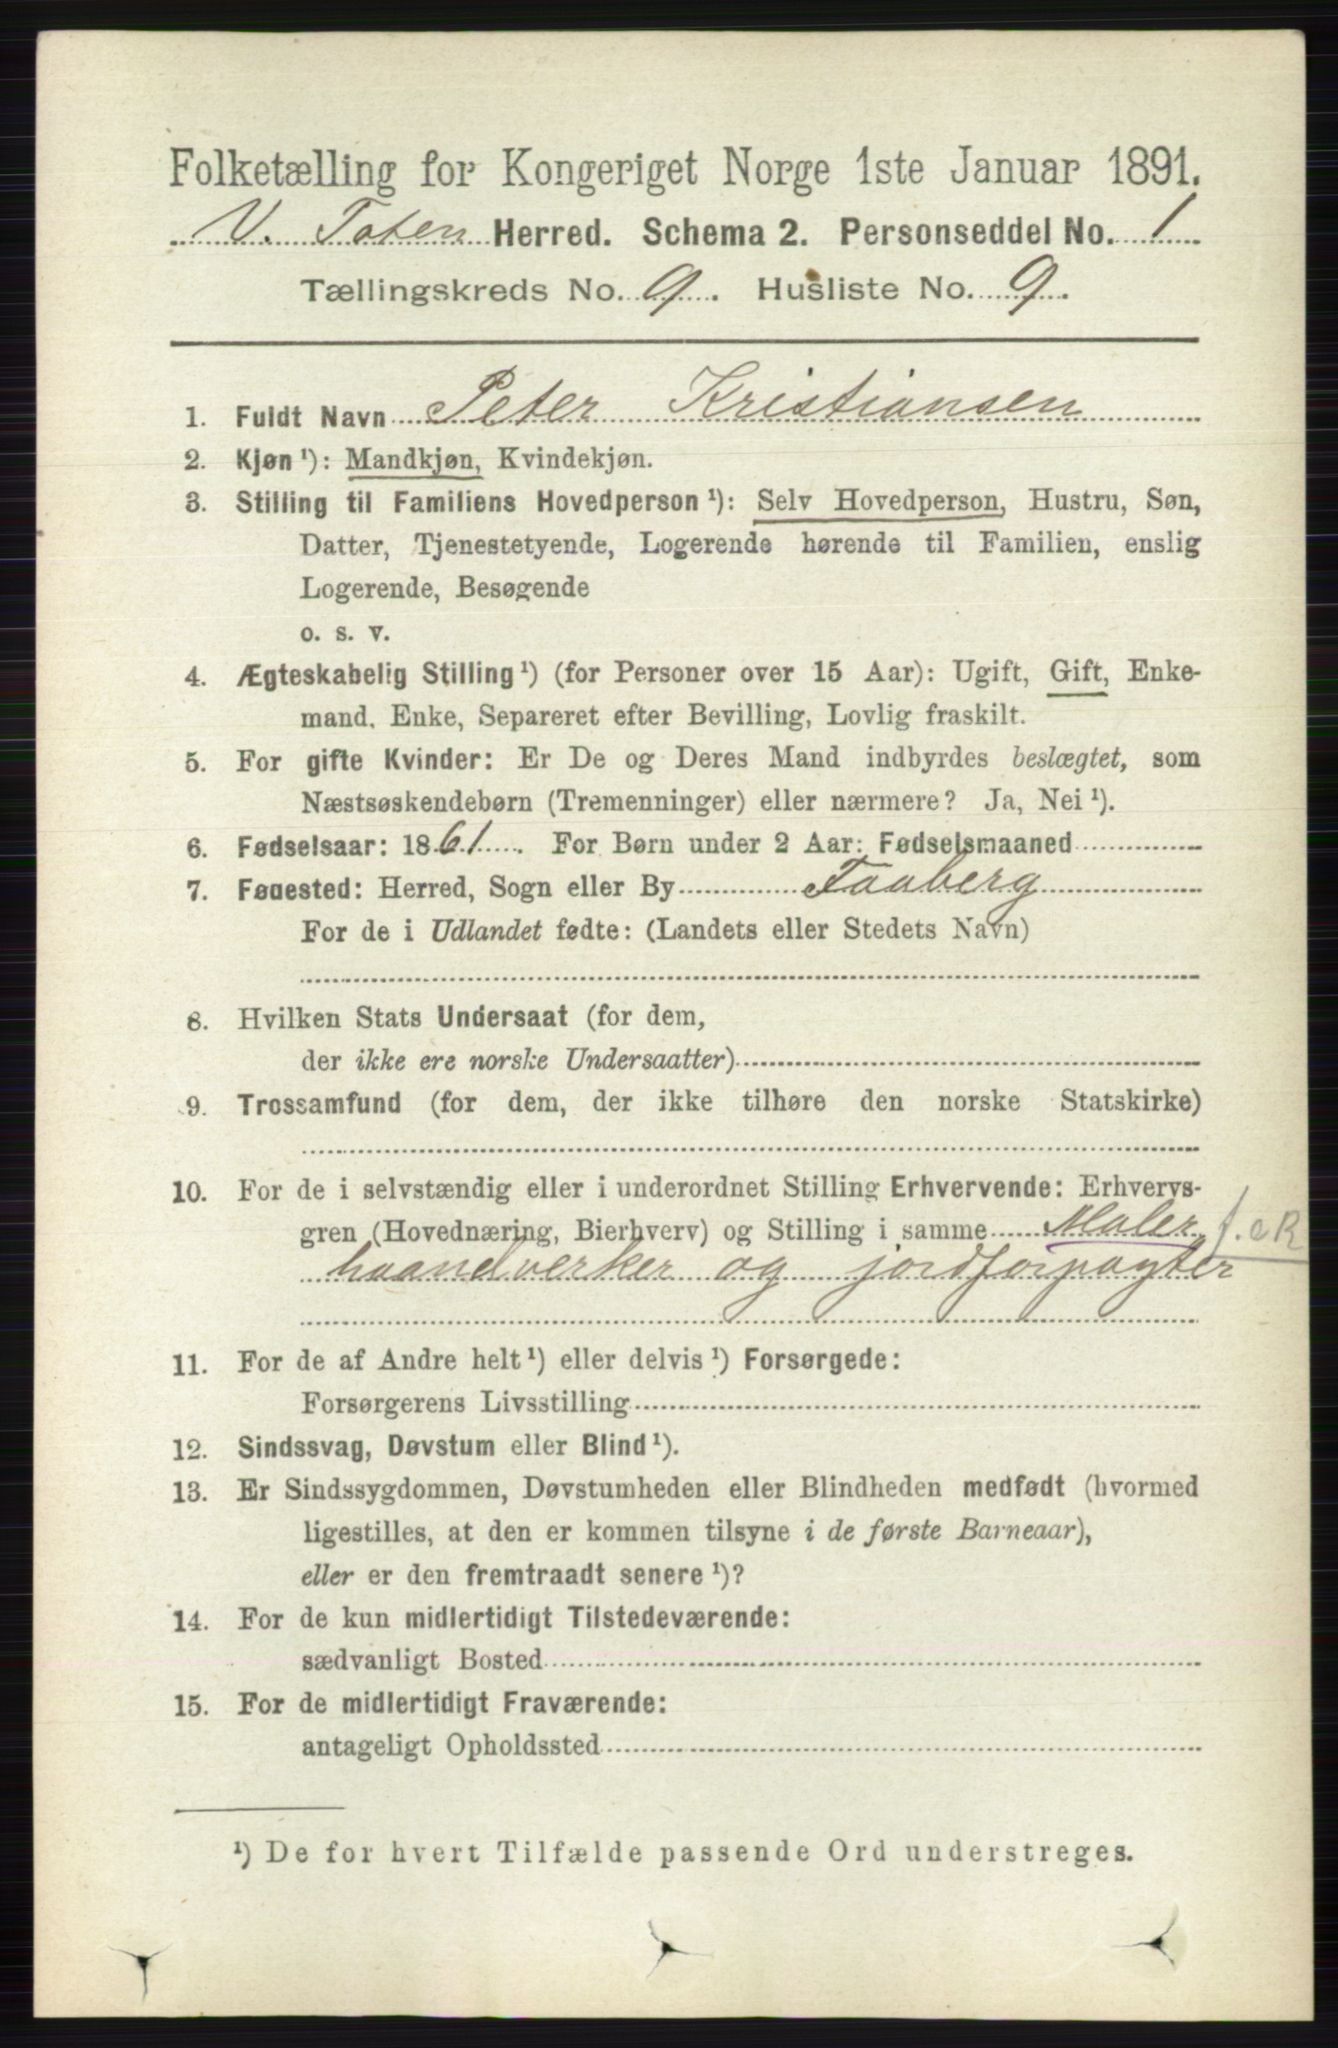 Folketælling for Kongeriget Norge 1ste Januar 1891.
V. Toten Herred. Schema 2. Personseddel No. 1
Tællingskreds No. 9. Husliste No. 9.
1. Fuldt Navn Peter Kristiansen
2. Kjøn ¹): Mandkjøn, Kvindekjøn.
3. Stilling til Familiens Hovedperson ¹): Selv Hovedperson, Hustru, Søn,
Datter, Tjenestetyende, Logerende hørende til Familien, enslig
Logerende, Besøgende
o. s. v.
4. Ægteskabelig Stilling ¹) (for Personer over 15 Aar): Ugift, Gift, Enke-
mand, Enke, Separeret efter Bevilling, Lovlig fraskilt.
5. For gifte Kvinder: Er De og Deres Mand indbyrdes beslægtet, som
Næstsøskendebørn (Tremenninger) eller nærmere? Ja, Nei ¹).
6. Fødselsaar: 1861. For Børn under 2 Aar: Fødselsmaaned
7. Fødested: Herred, Sogn eller By Faaberg
For de i Udlandet fødte: (Landets eller Stedets Navn)
8. Hvilken Stats Undersaat (for dem,
der ikke ere norske Undersaatter)
9. Trossamfund (for dem, der ikke tilhøre den norske Statskirke)
10. For de i selvstændig eller i underordnet Stilling Erhvervende: Erhvervs-
gren (Hovednæring, Bierhverv) og Stilling i samme Maler
haandverker og jordforpagter
11. For de af Andre helt ¹) eller delvis ¹) Forsørgede:
Forsørgerens Livsstilling
12. Sindssvag, Døvstum eller Blind ¹).
13. Er Sindssygdommen, Døvstumheden eller Blindheden medfødt (hvormed
ligestilles, at den er kommen tilsyne i de første Barneaar),
eller er den fremtraadt senere ¹)?
14. For de kun midlertidigt Tilstedeværende:
sædvanligt Bosted
15. For de midlertidigt Fraværende:
antageligt Opholdssted
¹) De for hvert Tilfælde passende Ord understreges.